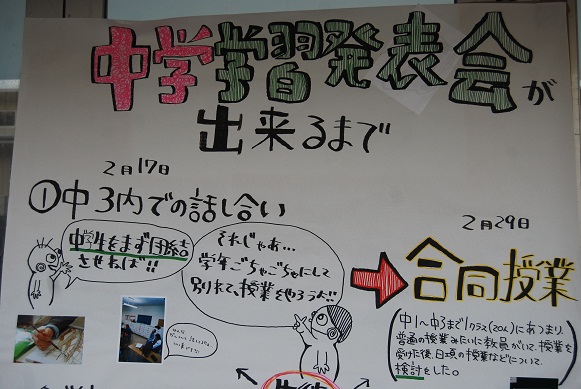 中学学習発表会が
出来るまで
2月17日
①中3内での話し合い
中学生をまず団結
させねば!!
それじゃあ…
学年ごちゃごちゃにして
別れて、授業をやろうよ!!
2月29日
合同授業
中1〜中3まで1クラス(20人)にあつまり、
普通の授業みたいに教員がいて、授業を
受けた後、日頃の授業などについて
検討をした。